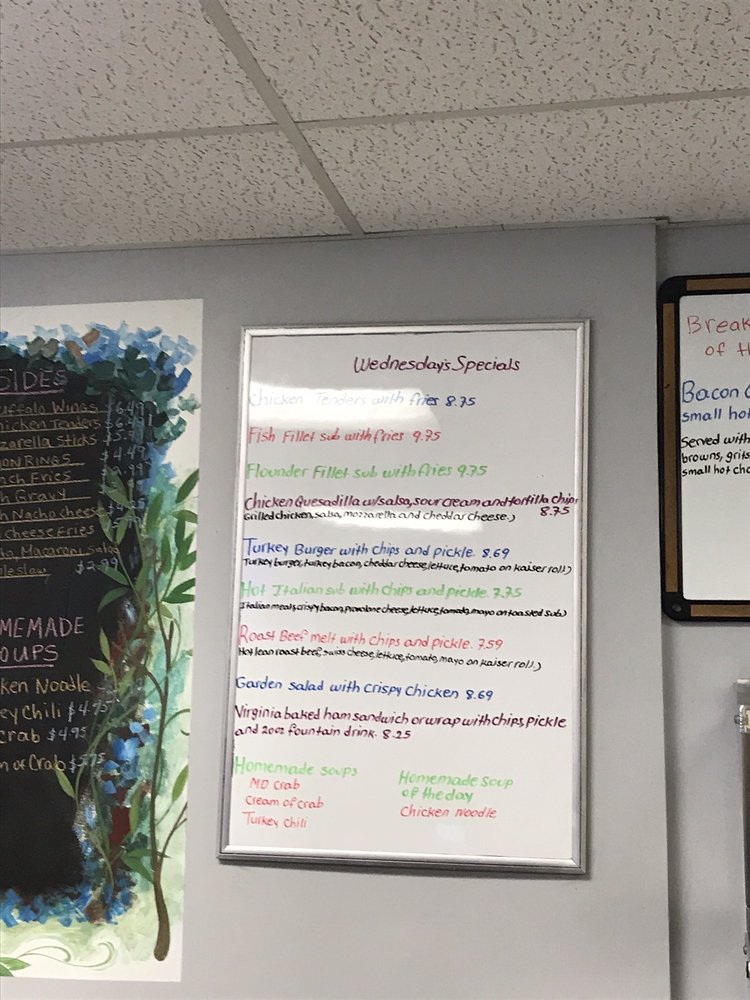 SIDES
uffalo Wings $6.49
hicken Tenders $6.49
zzarella Sticks $5.
ON RINGS $4.49
nch Fries
h Gravy
h Nacho cheese
cheese Fries
Macaroni Salad
leslaw $2.99
MEMADE
OUPS
ken Noodle
ey Chili $4.95
crab $4.95
m of Crab $5.75
Wednesday's Specials
Chicken Tenders with fries 8.75
Fish Fillet sub with fries 9.75
Flounder Fillet sub with fries 9.75
Chicken Quesadilla w/salsa, sour cream and tortilla chips
8.75
Grilled chicken, salsa, mozzarella and cheddar cheese.)
Turkey Burger with chips and pickle. 8.69
Turkey burger, turkey bacon, cheddar cheese, lettuce, tomato on kaiser roll)
Hot Italian sub with chips and pickle 7.75
Italian meats, crispy bacon, provolone cheese, lettuce, tomato, mayo on toasted sub)
Roast Beef melt with chips and pickle. 7.59
Hot lean roast beef, swiss cheese, lettuce, tomato, mayo on kaiser roll.)
Garden salad with crispy Chicken 8.69
Virginia baked ham sandwich or wrap with chips, pickle
and 20oz fountain drink. 8.25
Homemade soups
MD Crab
Cream of crab
Turkey chili
Homemade soup
of the day
Chicken Noodle
Break
of th
Bacon
small hot
Served with
browns, grits
small hot cho